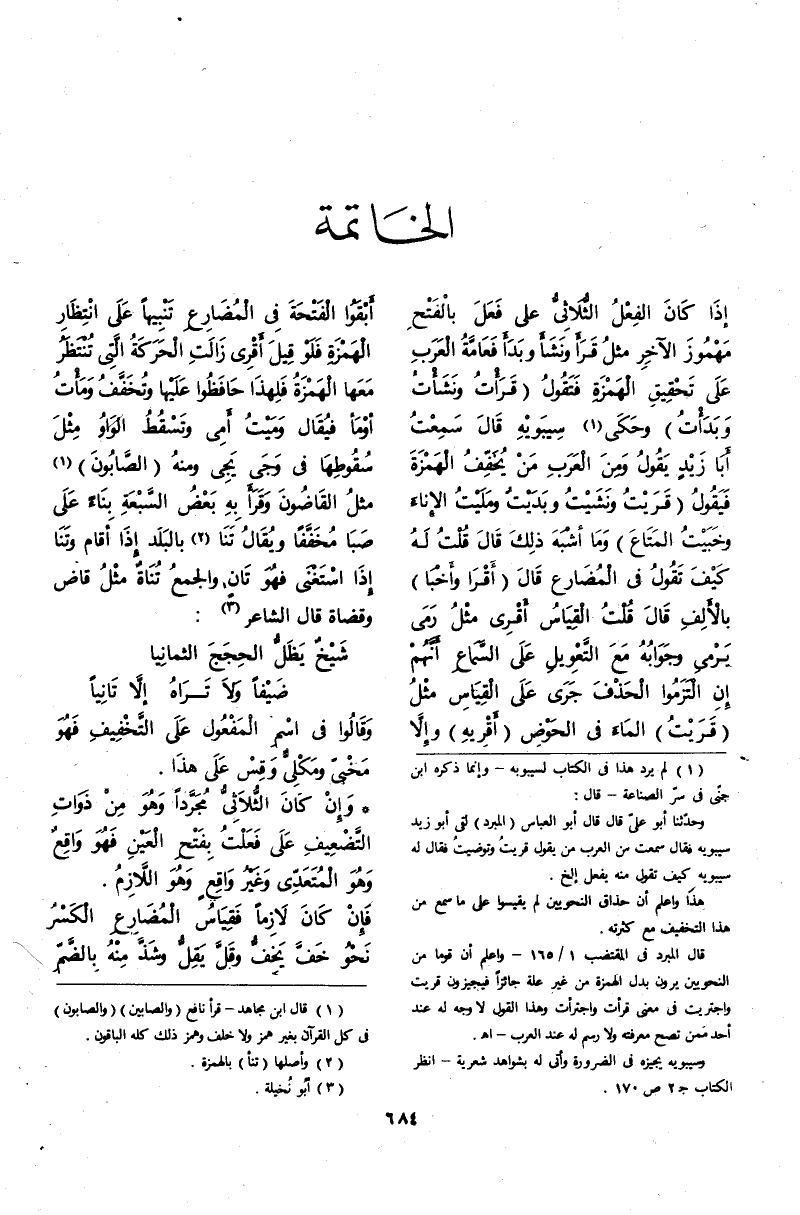 الخاتمة
إِذَا كَانَ الفِعْلُ الثُّلَاثِىُّ على فَعَلَ بالْفَتْحِ
مَهْمُوزَ الآخِرِ مثلُ قَرَأَ ونَشَأَ وبَدَأَ فَعَامَّةُ العَرَبِ
عَلَى تَحْقِيقِ الْهَمْزَةِ فَتَقُولُ ( قَرَأْتُ ونَشَأْتُ
وَبَدَأْتُ ) وحَكَى (١) سِيبَوَيْهِ قَالَ سَمِعْتُ
أَبَا زَيْدٍ يَقُولُ وَمِنَ الْعَرَبِ مَنْ يُخَفِّفُ الْهَمْزَةَ
فَيَقُولُ ( قَرَيْتُ ونَشَيْتُ وبَدَيْتُ ومَلَيْتُ الإناءَ
وخَبَيْتُ المَتَاعَ ) وَمَا أَشْبَهَ ذلِكَ قَالَ قُلْتُ لَهُ
كَيْفَ تَقُولُ فى الْمُضَارِعِ قَالَ ( أَقْرَا وأَخْبَا )
بالأَلِفِ قَالَ قُلْتُ القِيَاسُ أَقْرِى مثْلُ رَمَى
يَرْمِى وجَوَابُهُ مَعَ التَّعْوِيلِ عَلَى السَّمَاعِ أَنَّهُمْ
إنِ الْتَزَمُوا الْحَذْفَ جَرَى عَلَى الْقِيَاسِ مثْلُ
( قَرَيْتُ ) المَاءَ فى الحَوْضِ ( أَقْرِيهِ ) وإلَّا
( ١ ) لم يرد هذا فى الكتاب لسيبويه – وإنما ذكره ابن
جنّى فى سرّ الصناعة – قال :
وحدّثنا أبو علىّ قال قال أبو العباس ( المبرد ) لقى أبو زيد
سيبويه فقال سمعت من العرب من يقول قريتُ وتوضيتُ فقال له
سيبويه كيف تقول منه يفعل إلخ .
هذا واعلم أن حذاق النحويين لم يقيسوا على ما سمع من
هذا التخفيف مع كثرته .
قال المبرد فى المقتضب ١ / ١٦٥ – واعلم أن قوما من
النحويين يرون بدل الهمزة من غير علة جائزاً فيجيزون قريت
واجتريت فى معنى قرأت واجترأت وهذا القول لا وجه له عند
أحد ممن تصح معرفته ولا رسم له عند العرب – اهـ .
وسيبويه يجيزه فى الضرورة وأتى له بشواهد شعرية – انظر
الكتاب جـ ٢ ص ١٧٠ .
أَبْقَوُا الْفَتْحَةَ فى الْمُضَارِعِ تَنْبِيهاً عَلَى انْتِظَارِ
الهَمْزَةِ فَلَوْ قِيلَ أَقْرِى زَالَتِ الْحَرَكَةُ الَّتِى تُنْتَظَرُ
مَعَها الْهَمْزَةُ فَلِهذَا حَافَظُوا عَلَيْها وتُخَفَّفُ وَمَأْتُ
أَوْمَأ فيُقَال وَمَيْتُ أَمِى وتَسْقُطُ الْوَاوُ مِثْلَ
سُقُوطِهَا فى وَجَى يَجِى ومنهُ ( الصَّابُونَ ) (١)
مثلُ القَاضُونَ وَقَرَأَ بِهِ بَعْضُ السَّبْعَةِ بِنَاءً عَلَى
صَبَا مُخَفَّفًا ويُقَالُ تَنَا (٢) بالبَلَدِ إِذَا أقام وتَنَا
إِذَا اسْتَغْنَى فهُوَ تَانٍ والجمعُ تُنَاةٌ مثْلُ قاض
وقضاة قال الشاعر (٣) :
شَيْخٌ يَظَلُّ الحِجَجَ الثمانيا
ضَيْفاً وَلَا تَـرَاهُ إلَّا تَانِياً
وَقَالُوا فى اسْمِ الْمَفْعُول عَلَى التَّخْفِيفِ فَهُوَ
مَخْبِىّ ومَكْلِىٌّ وَقِسْ عَلَى هذَا .
* وَإِنْ كَانَ الثُّلَاثِىُّ مُجَرَّداً وَهُوَ مِنْ ذَوَاتِ
التَّضْعِيفِ عَلَى فَعَلْتُ بِفَتْحِ الْعَيْنِ فَهُوَ وَاقِعٌ
وَهُوَ الْمُتَعَدِّى وَغَيْرُ وَاقِعٍ وَهُوَ اللَّازِمُ .
فَإِنْ كَانَ لَازِماً فَقِيَاسُ الْمُضَارِعِ الْكَسْرُ
نَحْوُ خَفَّ يَخِفُّ وقَلَّ يَقِلُّ وشَذَّ مِنْهُ بِالضَّمِّ
( ١ ) قال ابن مجاهد – قرأ نافع ( والصابين ) ( والصابون )
فى كل القرآن بغير همز ولا خلف وهمز ذلك كله الباقون .
( ٢ ) وأصلها ( تنأ ) بالهمزة .
( ٣ ) أبو نُخيلة .
٦٨٤